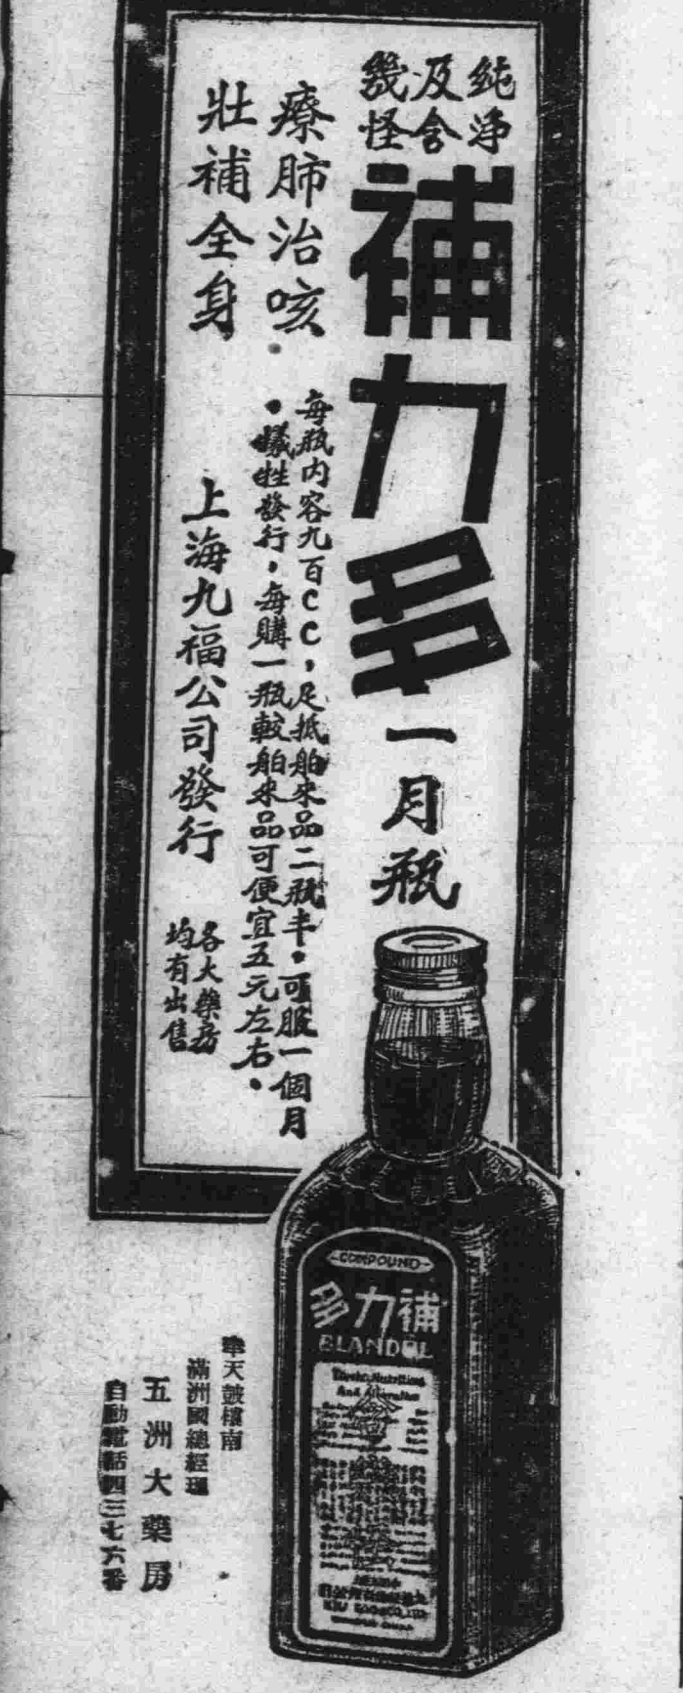 純淨
及含
幾怪
補力多一月瓶
療肺治咳
壯補全身
每瓶内容九百CC，足抵舶來品二瓶半。可服一個月
。犧牲發行，每購一瓶較舶來品可便宜五元左右。
上海九福公司發行
各大藥房
均有出售
COMPOUND
多力補
BLANDOL
奉天鼓樓南
滿洲國總經理
五洲大藥房
自動電話四三七六番